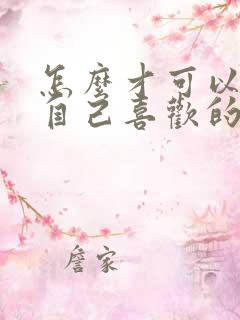 怎麼才可以
自己喜歡的
詹家